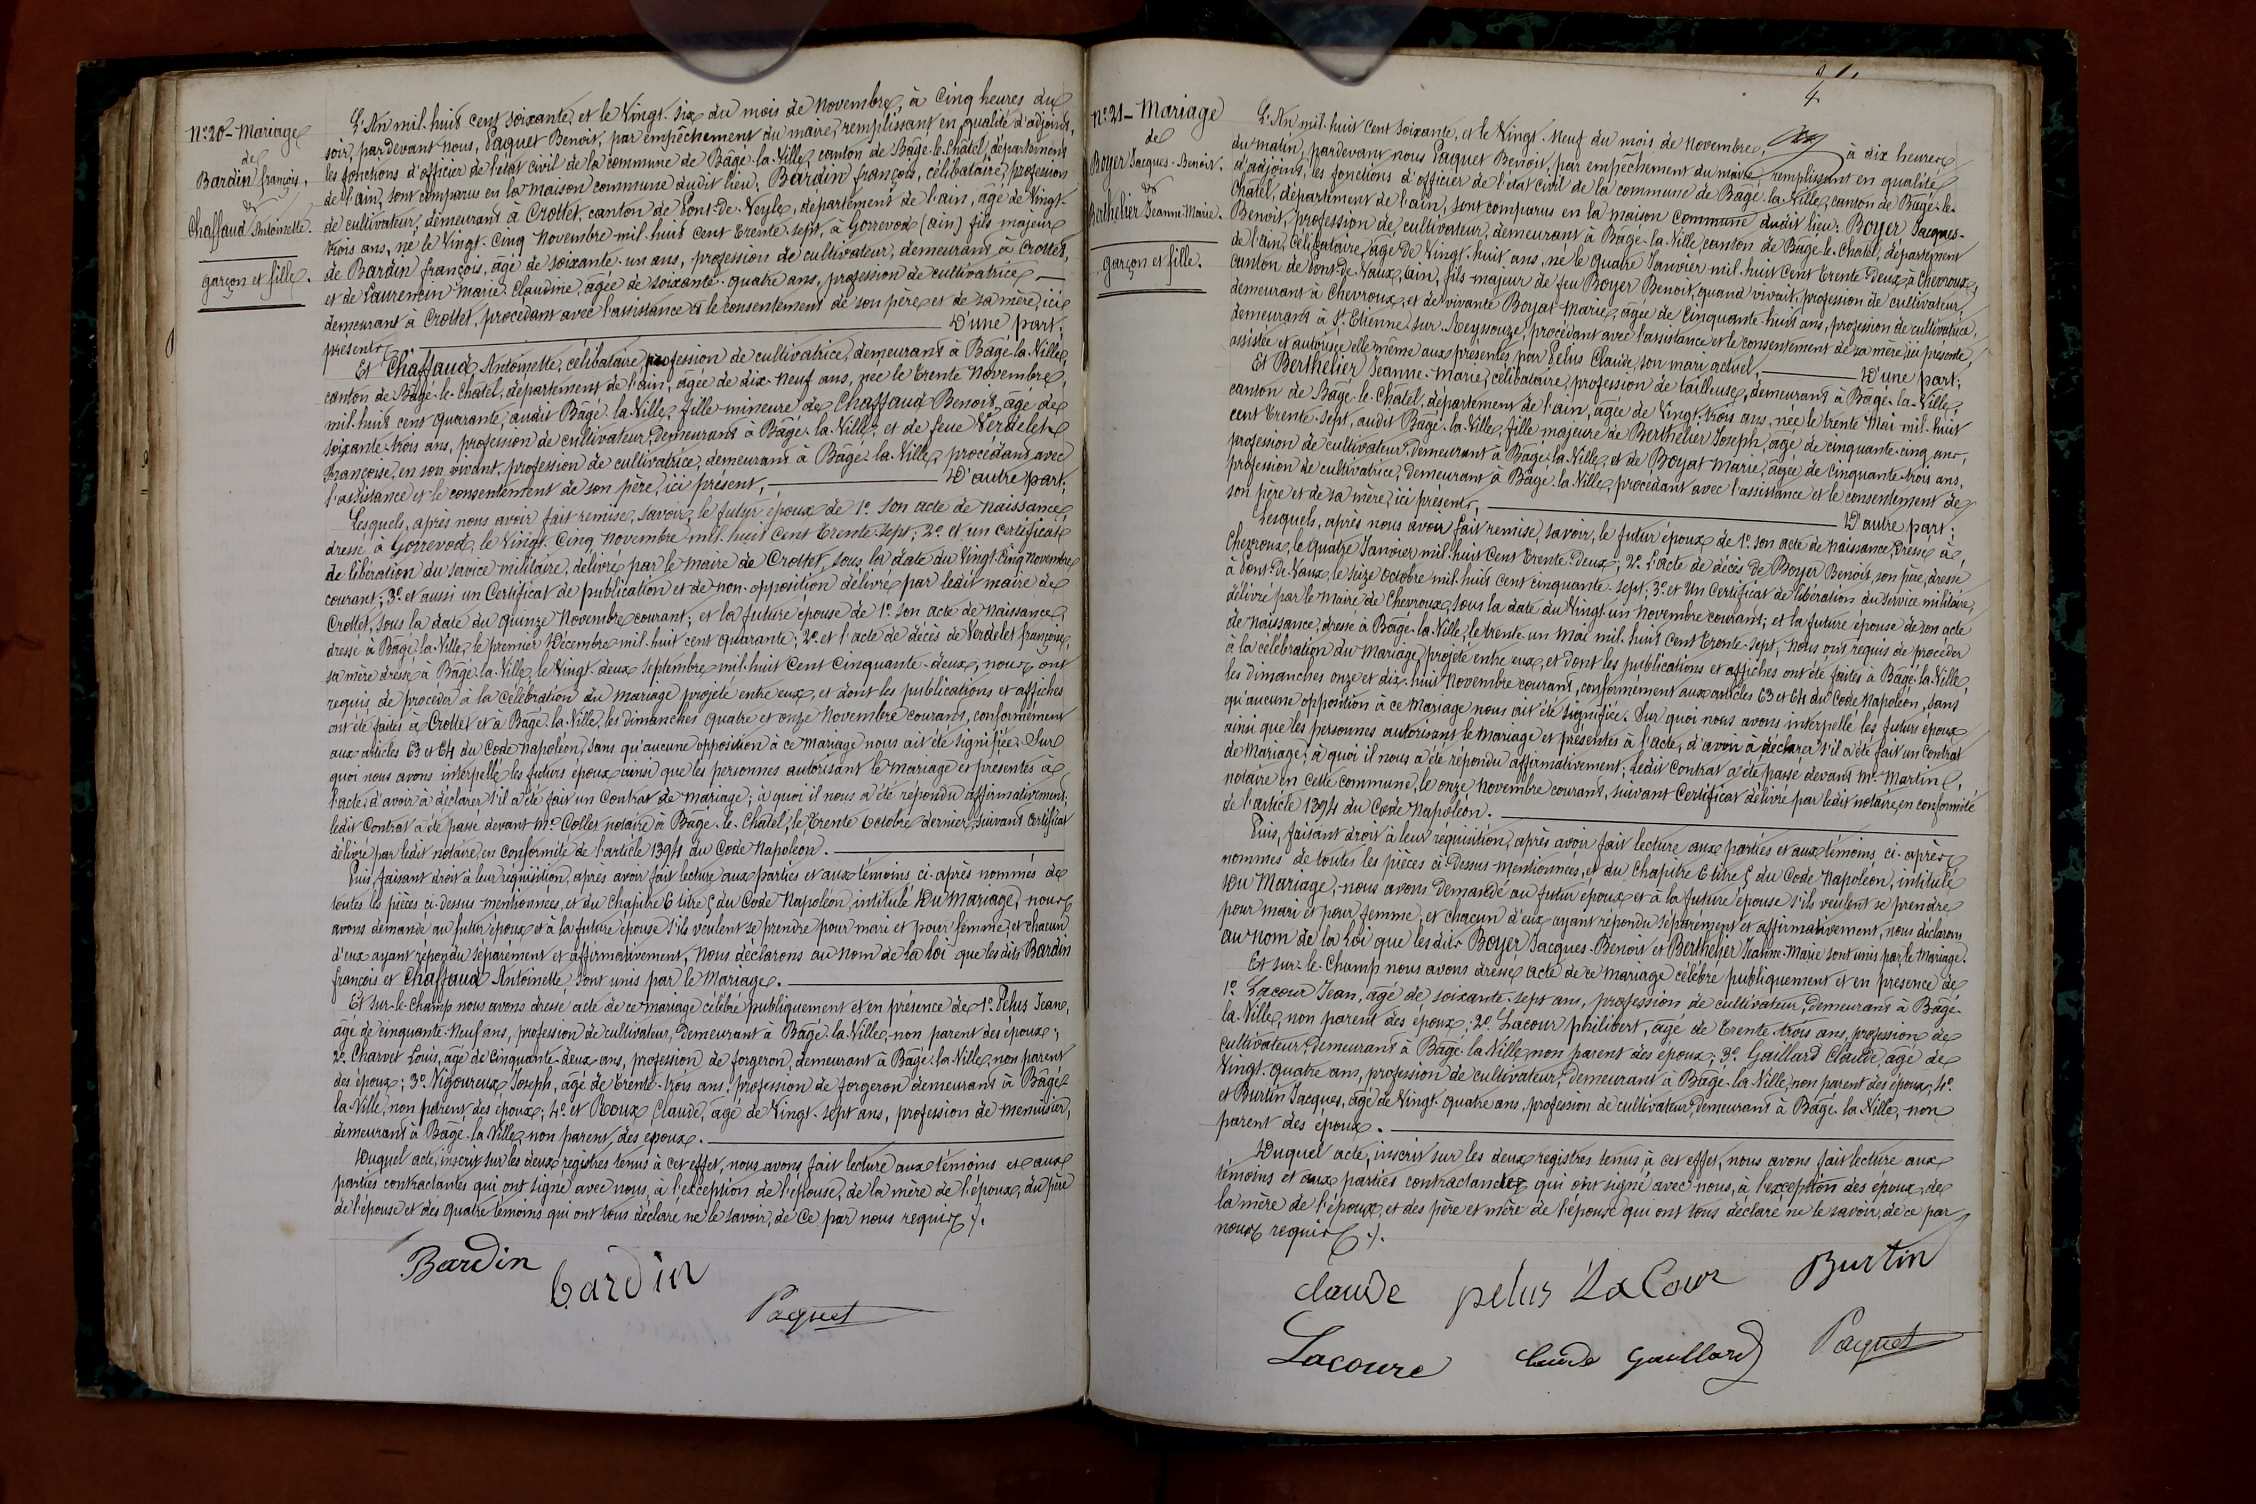 N° 20 - Mariage
de
Bardin françois,
&
Chaffaud Antoinette.
garçon et fille.
L'An mil huit cent soixante, et le Vingt-six du mois de Novembre, à Cinq heures du
soir, pardevant nous, Paquet Benoit, par empêchement du maire, remplissant en qualité d'adjoint,
les fonctions d'officier de l'état civil de la commune de Bâgé-la-Ville, canton de Bâgé-le-Châtel, département
de l'ain, sont comparus en la maison commune dudit lieu, Bardin françois, célibataire, profession
de cultivateur, demeurant à Crottet, canton de Pont-de-Veyle, département de l'ain, âgé de Vingt-
trois ans, né le Vingt-Cinq Novembre mil huit cent trente-sept, à Gorrevod (ain) fils majeur
de Bardin françois, âgé de soixante-un ans, profession de cultivateur, demeurant à Crottet,
et de Laurencin Marie-Claudine, âgée de soixante-quatre ans, profession de cultivatrice,
demeurant à Crottet, procédant avec l'assistance et le consentement de son père et de sa mère, ici
présents, D'une part.
Et Chaffaud Antoinette, célibataire, profession de cultivatrice, demeurant à Bâgé-la-Ville,
canton de Bâgé-le-Châtel, département de l'ain, âgée de dix-Neuf ans, née le trente Novembre
mil huit cent quarante, audit Bâgé-la-Ville, fille mineure de Chaffaud Benoit, âgé de
soixante-trois ans, profession de cultivateur, demeurant à Bâgé-la-Ville, et de feue Verdelet
Françoise, en son vivant, profession de cultivatrice, demeurant à Bâgé-la-Ville, procédant avec
l'assistance et le consentement de son père, ici présent, D'autre part.
Lesquels, après nous avoir fait remise, savoir, le futur époux de 1° son acte de Naissance,
dressé à Gorrevod, le Vingt-Cinq Novembre mil huit cent trente-sept; 2° et un certificat
de libération du service militaire, délivré par le maire de Crottet, sous la date du Vingt-Cinq Novembre
courant; 3° et aussi un Certificat de publication et de non-opposition délivré par ledit maire de
Crottet, sous la date du quinze Novembre courant; et la future épouse de 1° son acte de Naissance,
dressé à Bâgé-la-Ville, le premier Décembre mil huit cent quarante; 2° et l'acte de décès de Verdelet françoise,
sa mère dressé à Bâgé-la-Ville, le Vingt-deux septembre mil huit Cent Cinquante-deux, nous ont
requis de procéder à la Célébration du Mariage projeté entre eux, et dont les publications et affiches
ont été faites à Crottet et à Bâgé-la-Ville, les dimanches quatre et onze Novembre courant, conformément
aux articles 63 et 64 du Code Napoléon, sans qu'aucune opposition à ce Mariage nous ait été signifiée. Sur
quoi nous avons interpellé les futurs époux ainsi que les personnes autorisant le Mariage et présentes à
l'acte, d'avoir à déclarer s'il a été fait un Contrat de Mariage; à quoi il nous a été répondu affirmativement;
ledit Contrat a été passé devant Me Collet notaire à Bâgé-le-Châtel, le trente Octobre dernier, suivant Certificat
délivré par ledit notaire, en conformité de l'article 1394 du Code Napoléon.
Puis, faisant droit à leur réquisition, après avoir fait lecture aux parties et aux témoins ci-après nommés de
toutes les pièces ci-dessus mentionnées, et du Chapitre 6 titre 5 du Code Napoléon, intitulé Du Mariage, nous
avons demandé au futur époux et à la future épouse s'ils veulent se prendre pour mari et pour femme, et chacun
d'eux ayant répondu séparément et affirmativement, Nous déclarons au nom de la loi que les dits Bardin
françois et Chaffaud Antoinette sont unis par le Mariage.
Et sur-le-Champ nous avons dressé acte de ce mariage célébré publiquement et en présence de 1° Pelus Jean,
âgé de cinquante-Neuf ans, profession de cultivateur, demeurant à Bâgé-la-Ville, non parent des époux;
2° Charvet Louis, âgé de Cinquante-deux ans, profession de forgeron, demeurant à Bâgé-la-Ville, non parent
des époux; 3° Vigoureux Joseph, âgé de trente-trois ans, profession de forgeron demeurant à Bâgé-
la-Ville, non parent des époux; 4° et Roux Claude, âgé de Vingt-sept ans, profession de menuisier,
demeurant à Bâgé-la-Ville, non parent des époux.
Duquel acte, inscrit sur les deux registres tenus à cet effet, nous avons fait lecture aux témoins et aux
parties contractantes qui ont signé avec nous, à l'exception de l'épouse, de la mère de l'époux, du père
de l'épouse et des quatre témoins qui ont tous déclaré ne le savoir, de ce par nous requis ./.
Bardin
bardin
Paquet
4
N° 21 - Mariage
de
Boyer Jacques-Benoit.
&
Berthelier Jeanne-Marie.
garçon et fille.
L'An mil huit cent soixante, et le Vingt-Neuf du mois de Novembre, à dix heures
du matin, pardevant nous Paquet Benoit, par empêchement du maire, remplissant en qualité
d'adjoint, les fonctions d'officier de l'état civil de la commune de Bâgé-la-Ville, canton de Bâgé-le-
Châtel, département de l'ain, sont comparus en la maison commune dudit lieu: Boyer Jacques-
Benoit, profession de cultivateur, demeurant à Bâgé-la-Ville, canton de Bâgé-le-Châtel, département
de l'ain, Célibataire, âgé de Vingt-huit ans, né le quatre Janvier mil huit Cent trente-Deux, à Chevroux,
canton de Pont-de-Vaux, (ain), fils majeur de feu Boyer Benoit, quand vivait, profession de cultivateur,
demeurant à Chevroux, et de vivante Boyat Marie, âgée de Cinquante-huit ans, profession de cultivatrice,
demeurant à St Etienne-sur-Reyssouze, procédant avec l'assistance et le consentement de sa mère, ici présente,
assistée et autorisée elle-même aux présentes par Pelus Claude, son mari actuel, D'une part.
Et Berthelier Jeanne-Marie, célibataire, profession de tailleuse, demeurant à Bâgé-la-Ville,
canton de Bâgé-le-Châtel, département de l'ain, âgée de Vingt-trois ans, née le trente Mai mil huit
cent trente-sept, audit Bâgé-la-Ville, fille majeure de Berthelier Joseph, âgé de cinquante-cinq ans,
profession de cultivateur, demeurant à Bâgé-la-Ville, et de Boyat Marie, âgée de Cinquante-trois ans,
profession de cultivatrice, demeurant à Bâgé-la-Ville, procédant avec l'assistance et le consentement de
son père et de sa mère, ici présents, D'autre part.
Lesquels, après nous avoir fait remise, savoir, le futur époux de 1° son acte de Naissance, dressé à
Chevroux, le quatre Janvier mil huit Cent trente-Deux; 2° l'acte de décès de Boyer Benoit, son père, dressé
à Pont-de-Vaux, le seize octobre mil huit cent cinquante-sept; 3° et Un Certificat de libération du service militaire,
délivré par le Maire de Chevroux, sous la date du Vingt-un Novembre courant; et la future épouse de son acte
de Naissance, dressé à Bâgé-la-Ville, le trente-un Mai mil huit Cent trente-sept, Nous ont requis de procéder
à la célébration du Mariage projeté entre eux, et dont les publications et affiches ont été faites à Bâgé-la-Ville,
les dimanches onze et dix-huit Novembre courant, conformément aux articles 63 et 64 du Code Napoléon, sans
qu'aucune opposition à ce Mariage nous ait été signifiée. Sur quoi nous avons interpellé les futurs époux
ainsi que les personnes autorisant le Mariage et présentes à l'acte, d'avoir à déclarer s'il a été fait un Contrat
de Mariage; à quoi il nous a été répondu affirmativement; ledit Contrat a été passé devant Me Martin,
notaire en Cette commune, le onze Novembre courant, suivant Certificat délivré par ledit notaire, en conformité
de l'article 1394 du Code Napoléon.
Puis, faisant droit à leur réquisition, après avoir fait lecture aux parties et aux témoins ci-après
nommés de toutes les pièces ci-Dessus mentionnées, et du Chapitre 6 titre 5 du Code Napoléon, intitulé
Du Mariage, nous avons demandé au futur époux et à la future épouse s'ils veulent se prendre
pour mari et pour femme, et chacun d'eux ayant répondu séparément et affirmativement, nous déclarons
au nom de la Loi que les dits Boyer Jacques-Benoit et Berthelier Jeanne-Marie sont unis par le Mariage.
Et sur-le-Champ nous avons dressé acte de ce mariage célébré publiquement et en présence de
1° Lacour Jean, âgé de soixante-sept ans, profession de cultivateur, demeurant à Bâgé-
la-Ville, non parent des époux; 2° Lacour philibert, âgé de trente-trois ans, profession de
cultivateur, demeurant à Bâgé-la-Ville, non parent des époux; 3° Gaillard Claude, âgé de
Vingt-quatre ans, profession de cultivateur, demeurant à Bâgé-la-Ville, non parent des époux; 4°
et Burtin Jacques, âgé de Vingt-quatre ans, profession de cultivateur, demeurant à Bâgé-la-Ville, non
parent des époux.
Duquel acte, inscrit sur les deux registres tenus à cet effet, nous avons fait lecture aux
témoins et aux parties contractantes qui ont signé avec nous, à l'exception des époux, de
la mère de l'époux, et des père et mère de l'épouse qui ont tous déclaré ne le savoir, de ce par
nous requis ./.
claude pelus LaCour Burtin
Lacoure claude Gaillard Paquet